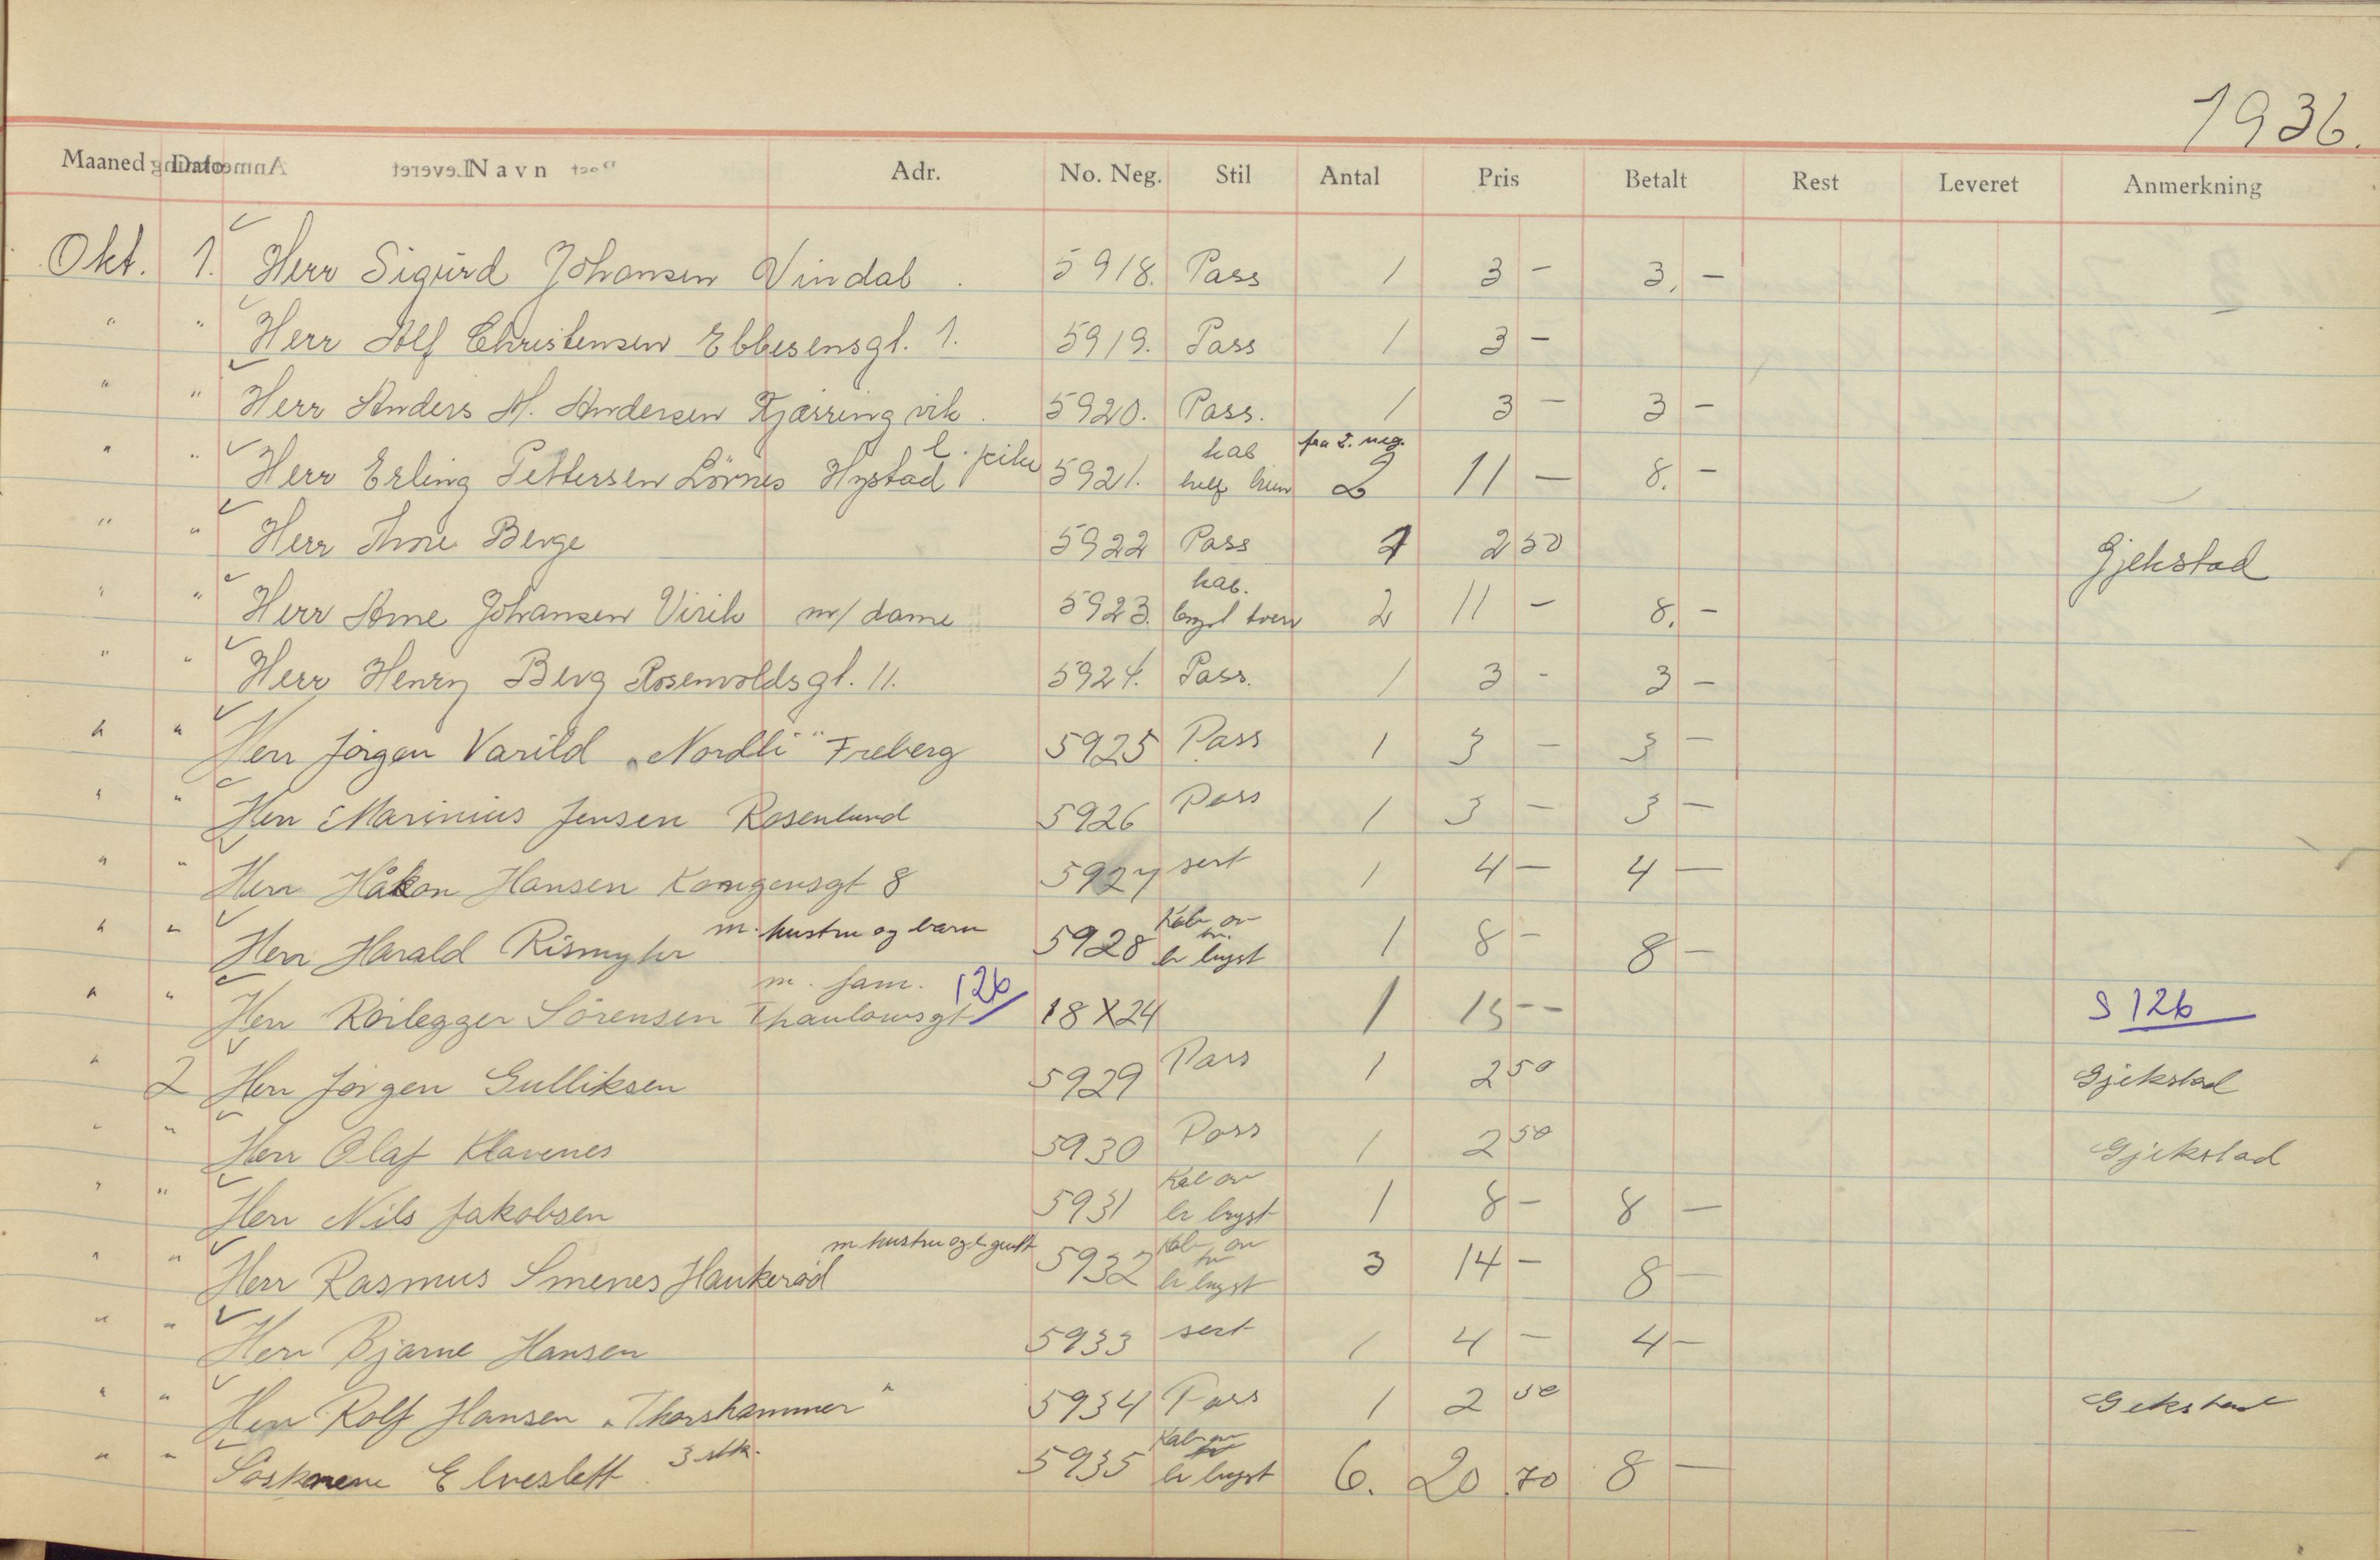 1936.
Maaned Dato Navn Adr. No. Neg. Stil Antal Pris Betalt Rest Leveret Anmerkning
Okt. 1. Herr Sigurd Johansen Vindal. 5918. Pass 1 3 - 3, -
" " Herr Alf Christensen Ebbesensgt. 1. 5919. Pass 1 3 -
" " Herr Anders M. Andersen Kjærringvik. 5920. Pass. 1 3 - 3 -
" " Herr Erling Pettersen Lörnes Hystad 5921. kab fra 2. neg. 2 11 - 8. -
" " Herr Arne Berge 5922 Pass 1 2 50 Gjekstad
" " Herr Arne Johansen Virik m/ dame 5923. kab. 2 11 - 8. -
" " Herr Henry Berg Rosenvoldsgt. 11. 5924. Pass. 1 3 - 3 -
" " Herr Jörgen Varild „Nordli" Freberg 5925 Pass 1 3 - 3 -
" " Herr Marinius Jensen Rosenlund 5926 Pass 1 3 - 3 -
" " Herr Håkon Hansen Kongensgt 8 5927 sert 1 4 - 4 -
" " Herr Harald Rismyhr m. hustru og barn 5928 Kab br bryst 1 8 - 8 -
" " Herr Rörlegger Sörensen m. fam. Thaulowsgt 126 18X24 1 15 - - S 126
" 2 Herr Jörgen Gulliksen 5929 Pass 1 2 50 Gjekstad
" " Herr Olaf Klavenes 5930 Pass 1 2 50 Gjekstad
" " Herr Nils Jakobsen 5931 Kab br bryst 1 8 - 8 -
" " Herr Rasmus Smenes Haukeröd m hustru og l. gutt 5932 Kab br bryst 3 14 - 8 -
" " Herr Bjarne Hansen 5933 sert 1 4 - 4 -
" " Herr Rolf Hansen „Thorshammer" 5934 Pass 1 2 50 Gekstad
" " Söskenene Elveslett 3 stk. 5935 Kab br bryst 6. 20 70 8 -